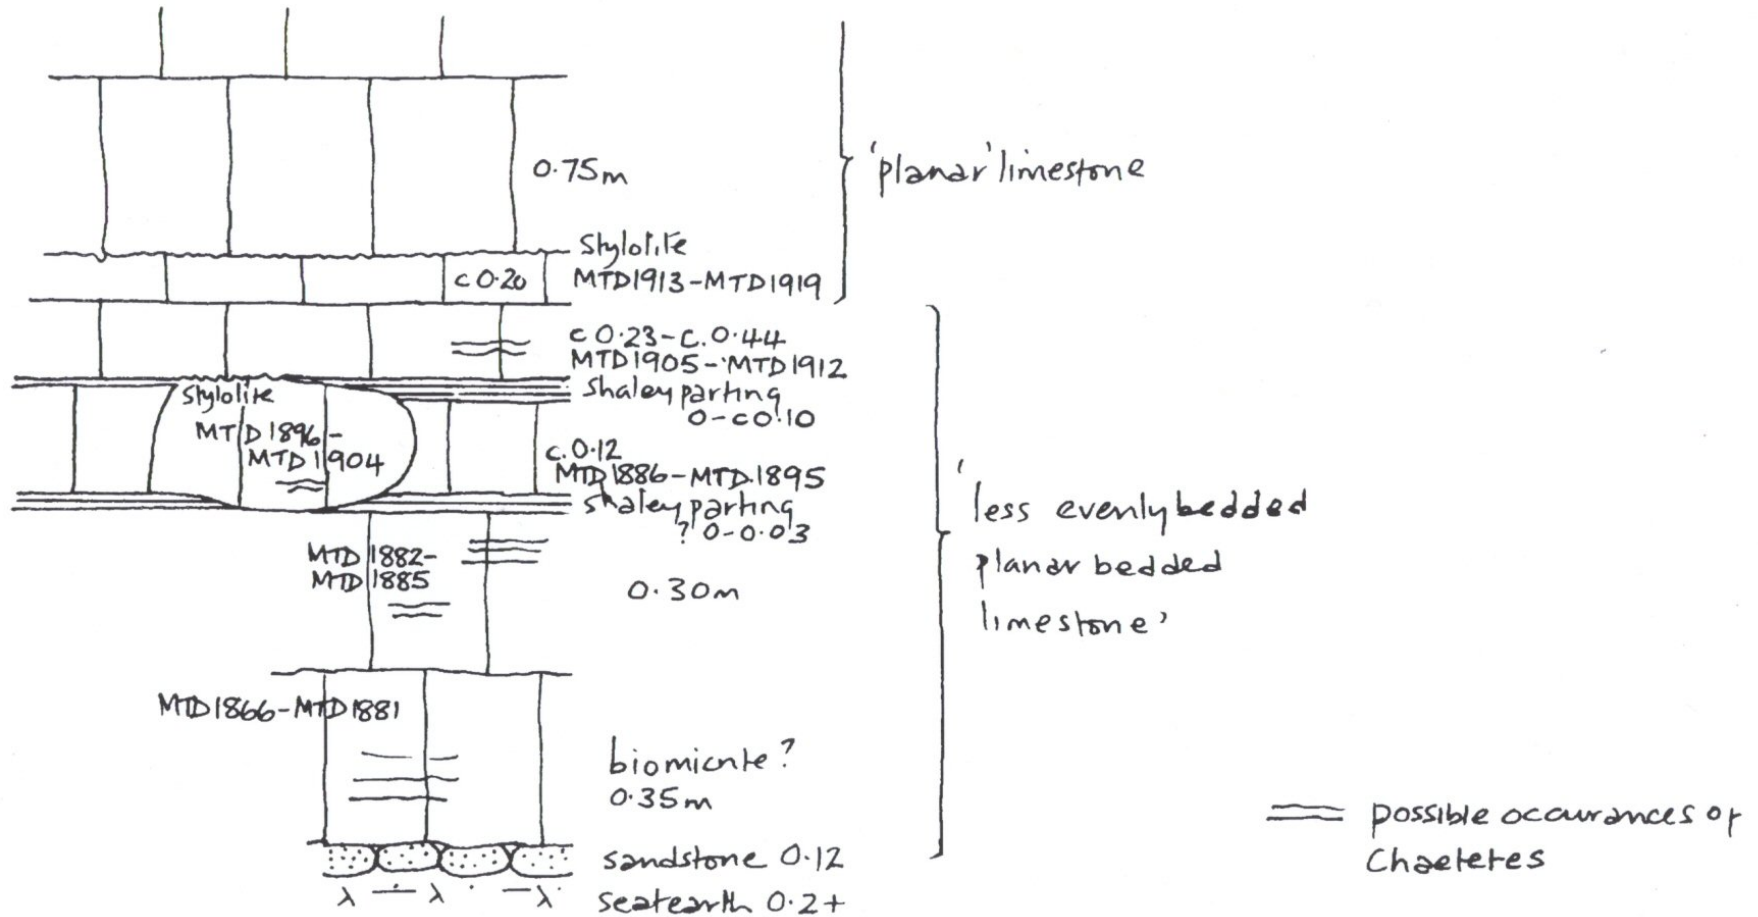 0.75m
'planar' limestone
Stylolite
c 0.20 MTD1913-MTD1919
c 0.23-c. 0.44
MTD1905-MTD1912
shaley parting
0-c0.10
Stylolite
MTD1896-
MTD1904
c. 0.12
MTD1886-MTD.1895
shaley parting
? 0-0.03
'less evenly bedded
planar bedded
limestone'
MTD1882-
MTD1885
0.30m
MTD1866-MTD1881
biomicrite?
0.35m
sandstone 0.12
seatearth 0.2+
possible occurances of
Chaetetes